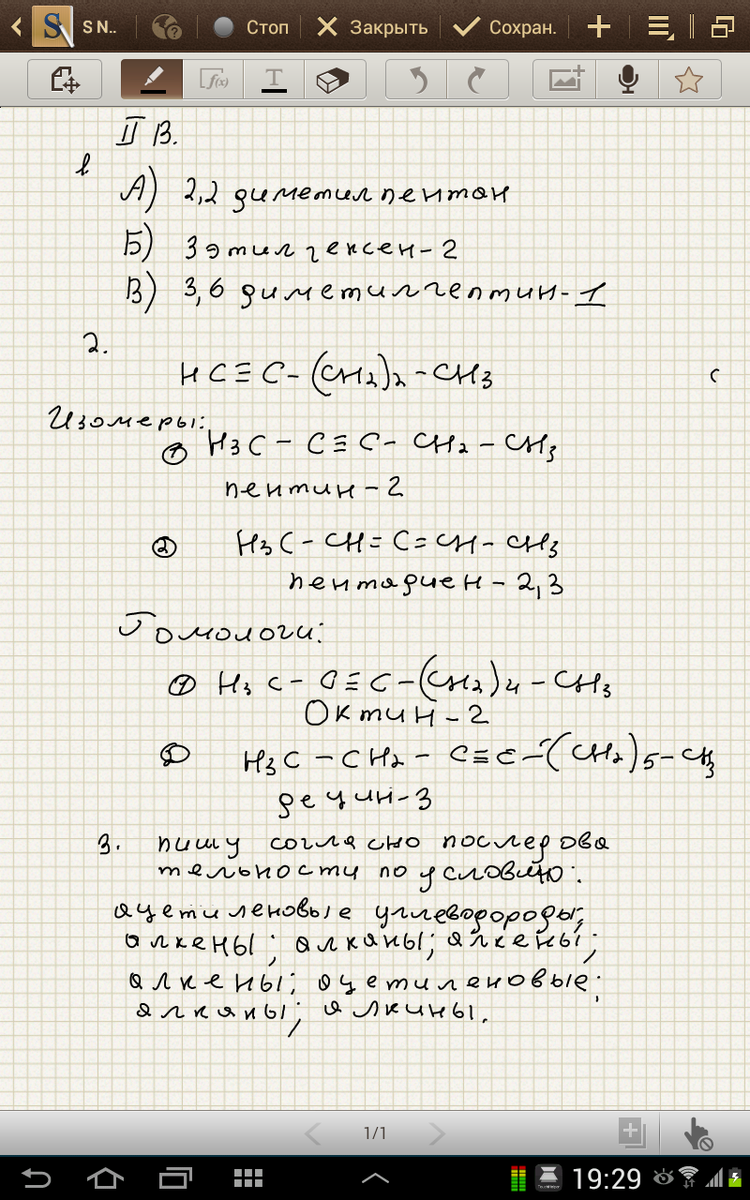 S N..
Стоп
Закрыть
Сохран.
f(x)
T
II В.
1
А) 2,2 диметилпентан
Б) 3 этилгексен-2
В) 3,6 диметилгептин-1
2.
HC≡C-(CH2)2-CH3
Изомеры:
① H3C-C≡C-CH2-CH3
пентин-2
② H3C-CH=C=CH-CH3
пентадиен-2,3
Гомологи:
① H3C-C≡C-(CH2)4-CH3
Октин-2
② H3C-CH2-C≡C-(CH2)5-CH3
децин-3
3. пишу согласно последова
тельности по условию:
ацетиленовые углеводороды;
алкены; алканы; алкены;
алкены; ацетиленовые;
алканы; алкины.
1/1
19:29